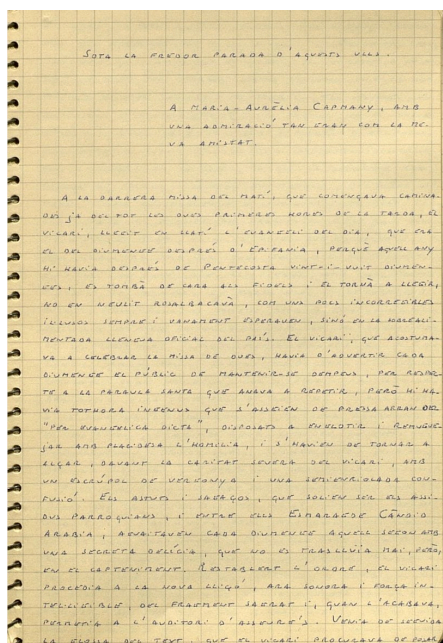 SOTA LA FREDOR PARADA D'AQUESTS ULLS.
A MARIA-AURÈLIA CAPMANY, AMB
UNA ADMIRACIÓ TAN GRAN COM LA ME-
VA AMISTAT.
A LA DARRERA MISSA DEL MATÍ, QUE COMENÇAVA CAMINA-
DES JA DEL TOT LES DUES PRIMERES HORES DE LA TARDA, EL
VICARI, LLEGIT EN LLATÍ L'EVANGELI DEL DIA, QUE ERA
EL DEL DIUMENGE DESPRÉS D'EPIFANIA, PERQUÈ AQUELL ANY
HI HAVIA DESPRÉS DE PENTECOSTA VINT-I-VUIT DIUMEN-
GES, ES TOMBÀ DE CARA ALS FIDELS I EL TORNÀ A LLEGIR,
NO EN NEULIT ROSALBACAVÀ, COM UNS POCS INCORREGIBLES
IL·LUSOS SEMPRE I VANAMENT ESPERAVEN, SINÓ EN LA
MENTADA LLENGUA OFICIAL DEL PAÍS. EL VICARI, QUE ACOSTUMA-
VA A CELEBRAR LA MISSA DE DUES, HAVIA D'ADVERTIR CADA
DIUMENGE EL PÚBLIC DE MANTENIR-SE DEMPEUS, PER RESPEC-
TE A LA PARAULA SANTA QUE ANAVA A REPETIR, PERÒ HI HA-
VIA TOTHORA INGENUS QUE S'ASSEIEN DE PRESSA ARRAN DEL
"PER EVANGELICA DICTA", DISPOSATS A ENGLOTIR I REMUGUE-
JAR AMB PLACIDESA L'HOMILIA, I S'HAVIEN DE TORNAR A
ALÇAR, DAVANT LA CARITAT SEVERA DEL VICARI, AMB
UN ESCRÚPOL DE VERGONYA I UNA SEMIENRIOLADA CON-
FUSIÓ. ELS ASTUTS I SAGAÇOS, QUE SOLIEN SER ELS ASSÍ-
DUS PARROQUIANS, I ENTRE ELLS ESMARAGDE CÀNDID
ARABIA, AGUAITAVEN CADA DIUMENGE AQUELL SEGON AMB
UNA SECRETA DELÍCIA, QUE NO ES TRASLLUÏA MAI, PERÒ,
EN EL CAPTENIMENT. RESTABLERT L'ORDRE, EL VICARI
PROCEDIA A LA NOVA LLIÇÓ, ARA SONORA I FORÇA IN-
TEL·LIGIBLE, DEL FRAGMENT SAGRAT I, QUAN L'ACABAVA,
PERMETIA A L'AUDITORI D'ASSEURE'S. VENIA DE SEGUIDA
LA GLOSSA DEL TEXT, QUE EL VICARI PROCURAVA DE